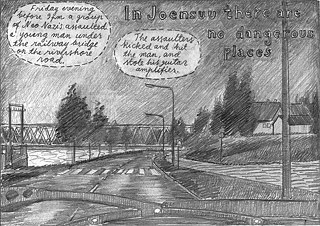 In Joensuu there are
no dangerous
places
Friday evening
before 9pm a group
of Neo Nazis assaulted
a young man under
the railway bridge
on the rivershore
road.
The assaulters
kicked and hit
the man, and
stole his guitar
amplifier.